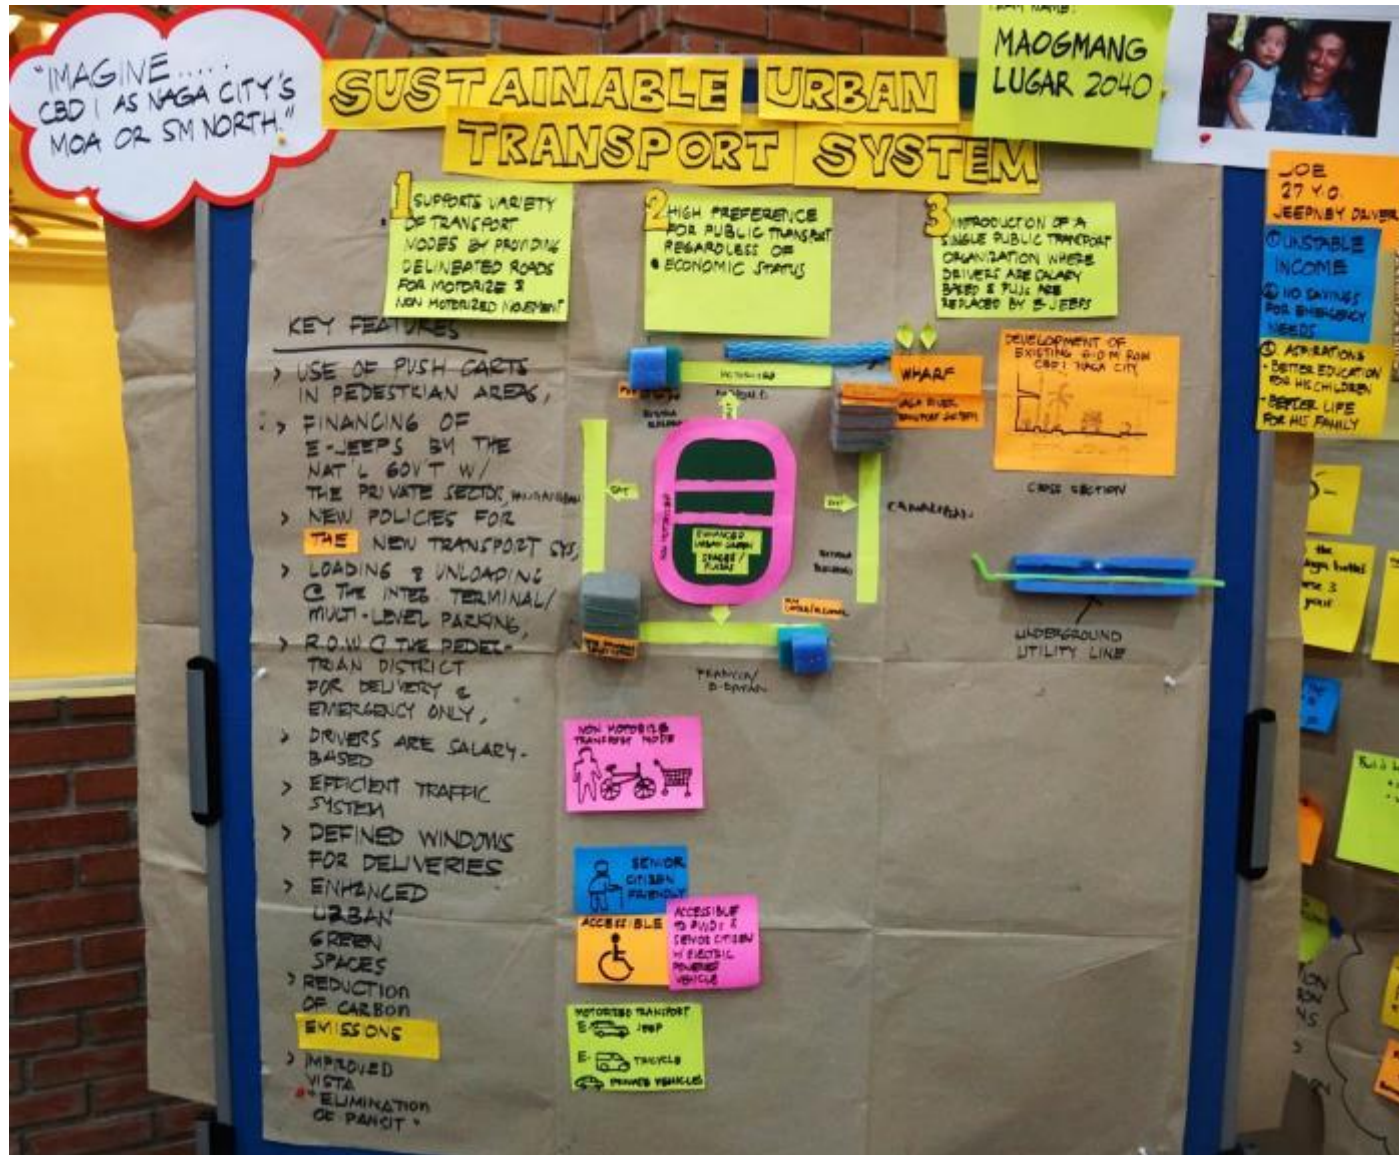 "IMAGINE.....
CBD I AS NAGA CITY'S
MOA OR SM NORTH."
SUSTAINABLE URBAN
TRANSPORT SYSTEM
TEAM NAME:
MAOGMANG
LUGAR 2040
JOE
27 Y.O.
JEEPNEY DRIVER
① UNSTABLE
INCOME
② NO SAVINGS
FOR EMERGENCY
NEEDS
③ ASPIRATIONS
- BETTER EDUCATION
FOR HIS CHILDREN
- BETTER LIFE
FOR HIS FAMILY
1
SUPPORTS VARIETY
OF TRANSPORT
MODES BY PROVIDING
DELINEATED ROADS
FOR MOTORIZE &
NON MOTORIZED MOVEMENT
2
HIGH PREFERENCE
FOR PUBLIC TRANSPORT
REGARDLESS OF
ECONOMIC STATUS
3
INTRODUCTION OF A
SINGLE PUBLIC TRANSPORT
ORGANIZATION WHERE
DRIVERS ARE SALARY
BASED & PUJs ARE
REPLACED BY E-JEEPS
KEY FEATURES
> USE OF PUSH CARTS
IN PEDESTRIAN AREAS,
> FINANCING OF
E-JEEPS BY THE
NAT'L GOV'T W/
THE PRIVATE SECTOR,
> NEW POLICIES FOR
THE NEW TRANSPORT SYS,
> LOADING & UNLOADING
@ THE INTEG. TERMINAL/
MULTI-LEVEL PARKING,
> R.O.W @ THE PEDES-
TRIAN DISTRICT
FOR DELIVERY &
EMERGENCY ONLY,
> DRIVERS ARE SALARY-
BASED
> EFFICIENT TRAFFIC
SYSTEM
> DEFINED WINDOWS
FOR DELIVERIES
> ENHANCED
URBAN
GREEN
SPACES
> REDUCTION
OF CARBON
EMISSIONS
> IMPROVED
VISTA
"ELIMINATION
OF PANCIT"
MOTORIZED
WHARF
NAGA RIVER
TRANSPORT SYSTEM
NON MOTORIZED
ENHANCED
URBAN GREEN
SPACES/
PLAZAS
EXISTING
BUILDING
EXISTING
BUILDING
DEVELOPMENT OF
EXISTING 6.0 M ROW
CBD I NAGA CITY
CROSS SECTION
UNDERGROUND
UTILITY LINE
NON MOTORIZE
TRANSPORT MODE
SENIOR
CITIZEN
FRIENDLY
ACCESSIBLE
ACCESSIBLE
TO PWDs &
SENIOR CITIZEN
W/ ELECTRIC
POWERED
VEHICLE
MOTORIZED TRANSPORT
E- JEEP
E- TRICYCLE
PRIVATE VEHICLES